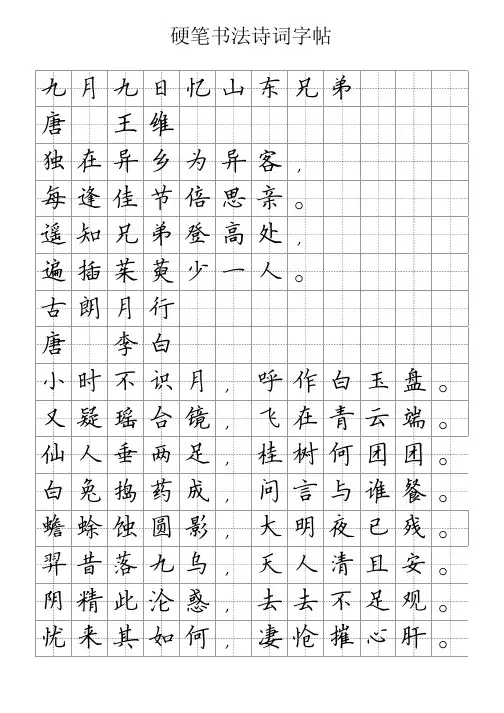 硬笔书法诗词字帖
九月九日忆山东兄弟
唐 王维
独在异乡为异客，
每逢佳节倍思亲。
遥知兄弟登高处，
遍插茱萸少一人。
古朗月行
唐 李白
小时不识月，呼作白玉盘。
又疑瑶台镜，飞在青云端。
仙人垂两足，桂树何团团。
白兔捣药成，问言与谁餐。
蟾蜍蚀圆影，大明夜已残。
羿昔落九乌，天人清且安。
阴精此沦惑，去去不足观。
忧来其如何，凄怆摧心肝。